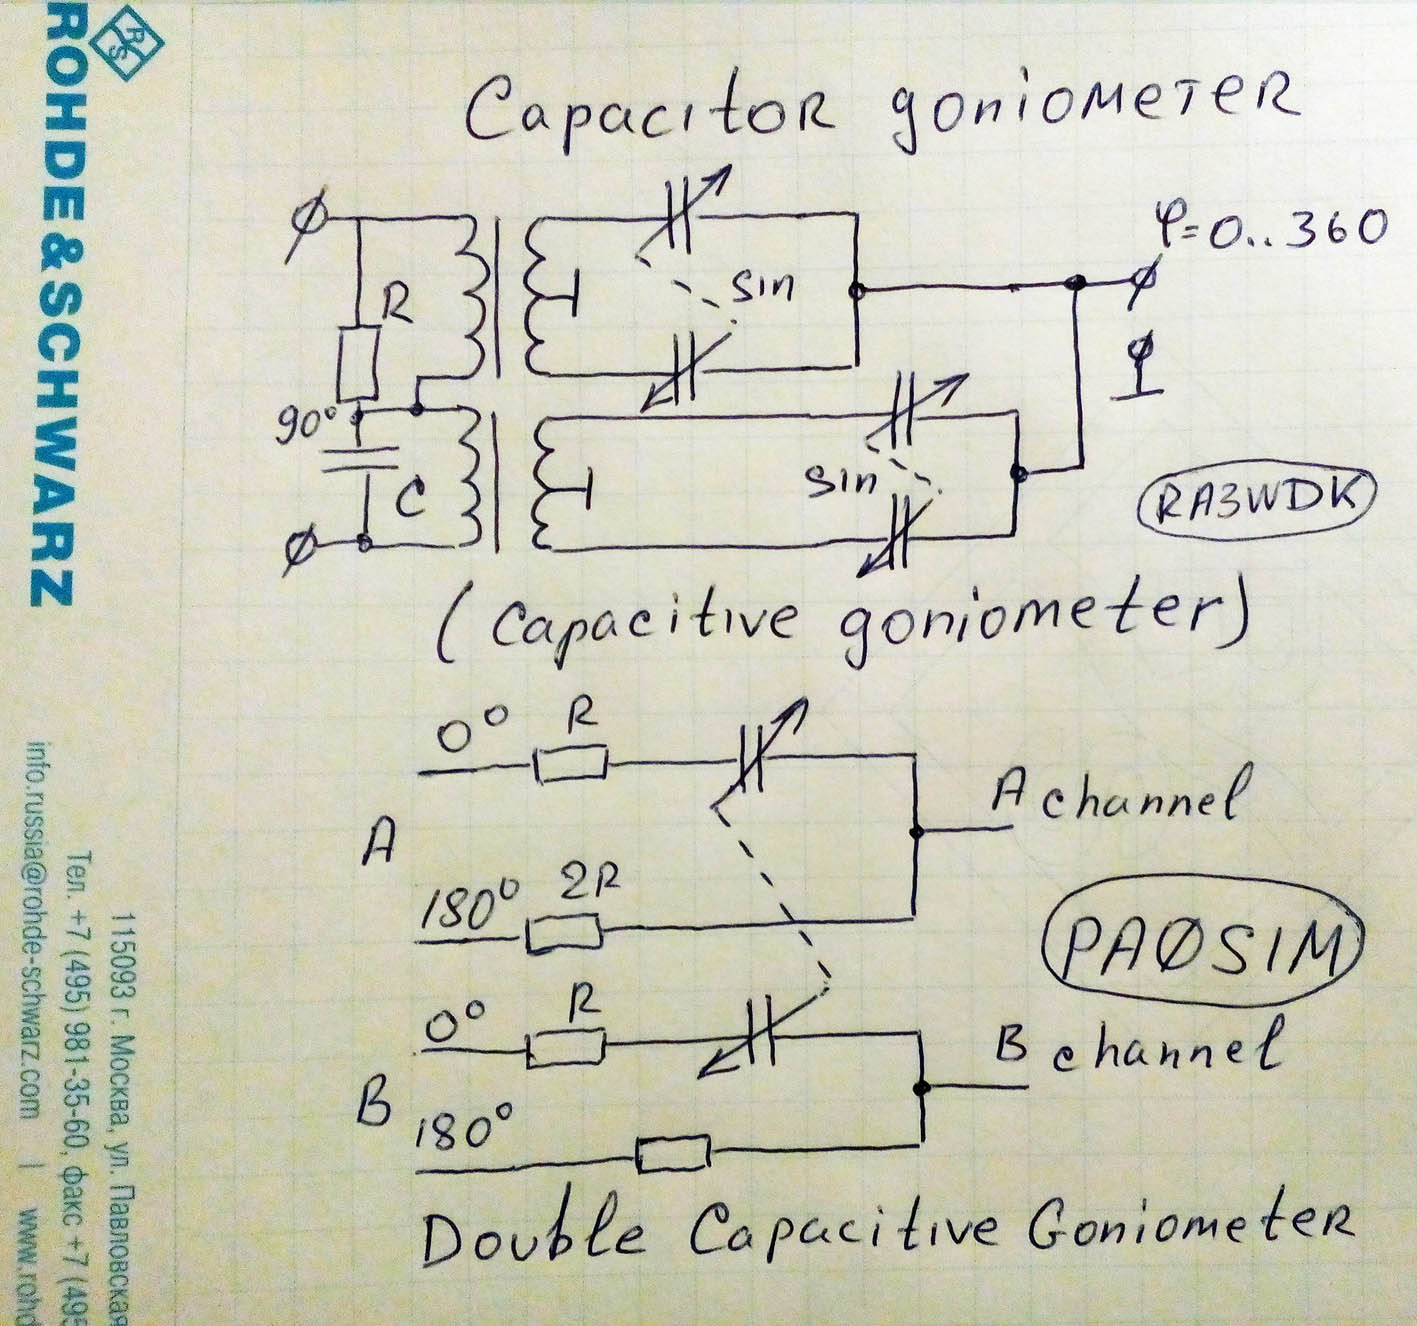 ROHDE & SCHWARZ
R
S
info.russia@rohde-schwarz.com | www.rohd
Тел. +7 (495) 981-35-60, факс +7 (495
115093 г. Москва, ул. Павловская
Capacitor goniometer
φ=0..360
R
sin
90°
C
sin
RA3WDK
(Capacitive goniometer)
0° R
A channel
A
180° 2R
PAØSIM
0° R
B channel
B
180°
Double Capacitive Goniometer